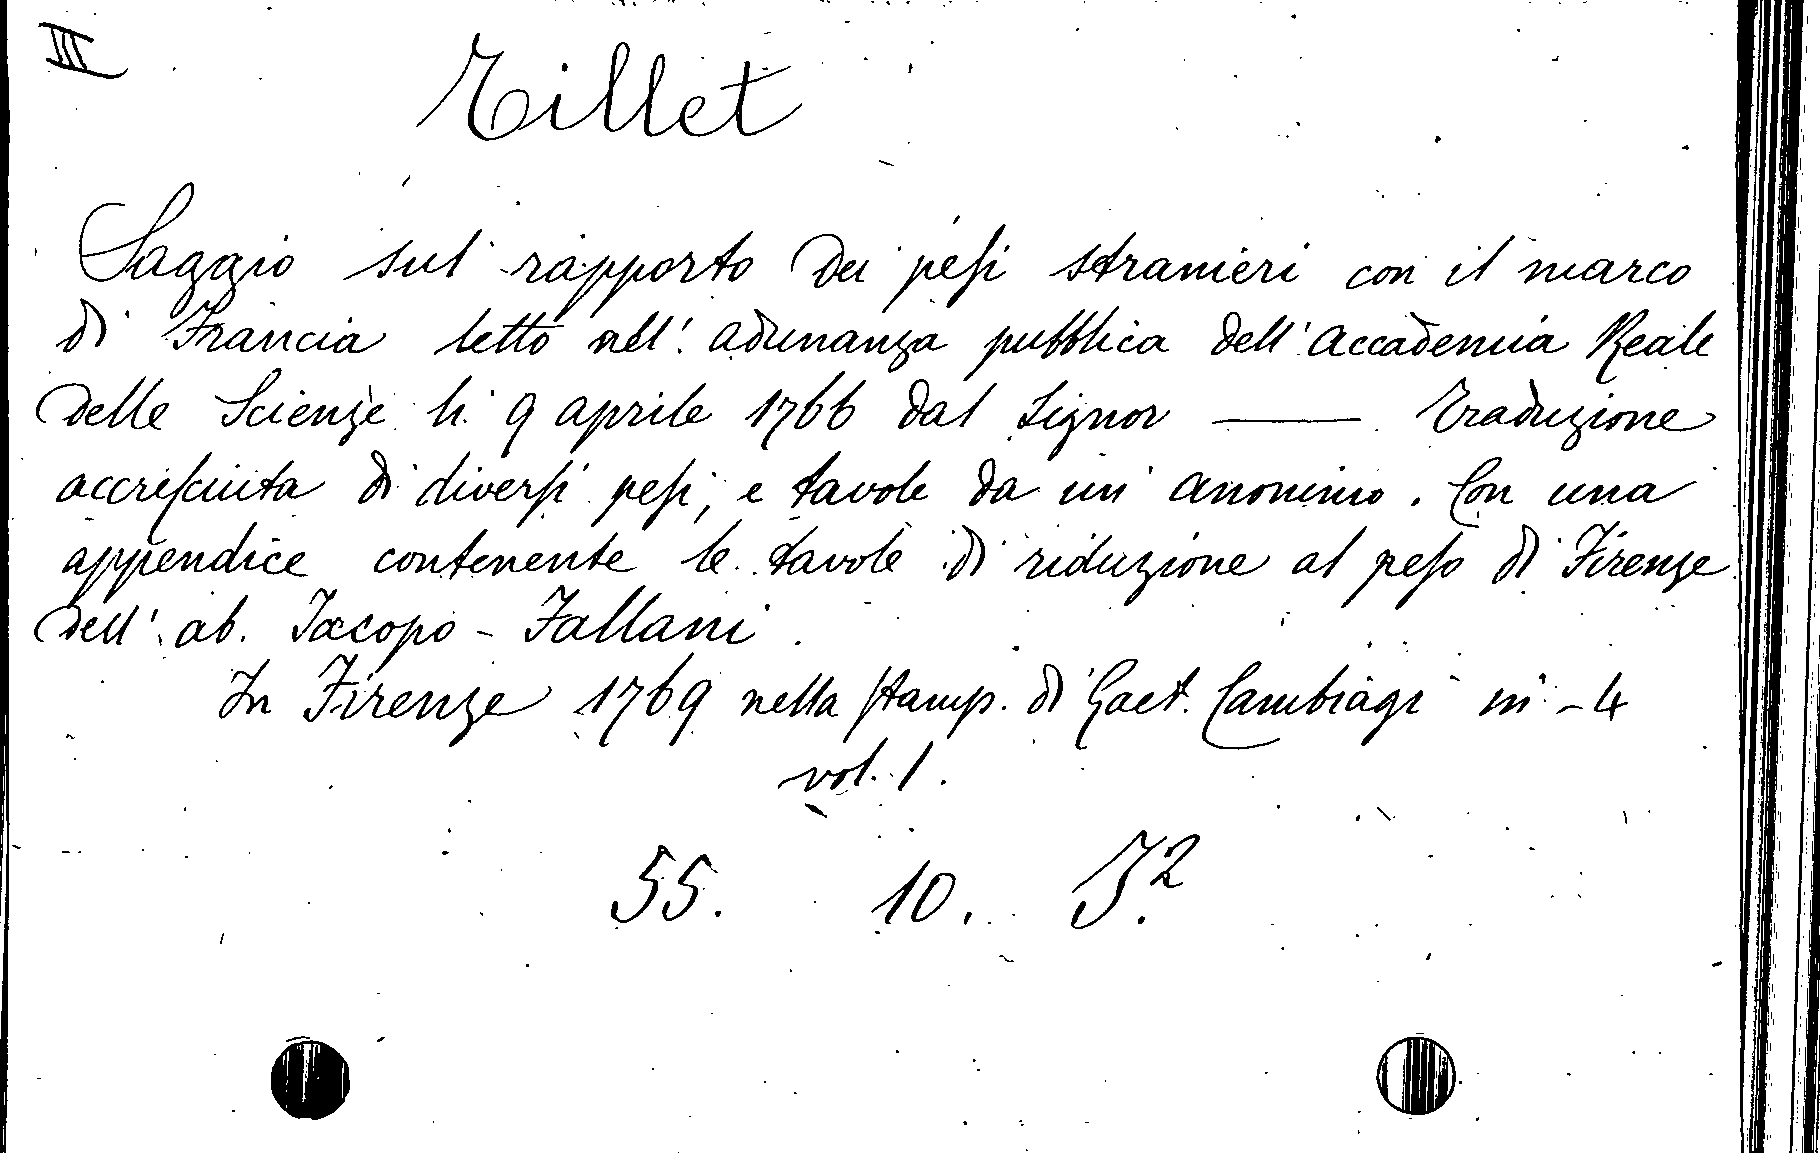 III
Tillet
Saggio sul rapporto dei pesi stranieri con il marco
di Francia letto nell'adunanza pubblica dell'Accademia Reale
delle Scienze li 9 aprile 1766 dal Signor ——— Traduzione
accresciuta di diversi pesi, e tavole da un anonimo. Con una
appendice contenente le tavole di riduzione al peso di Firenze
dell'ab. Iacopo - Fallani.
In Firenze 1769 nella stamp. di Gaet. Cambiagi in-4
vol. 1.
55. 10. J.²